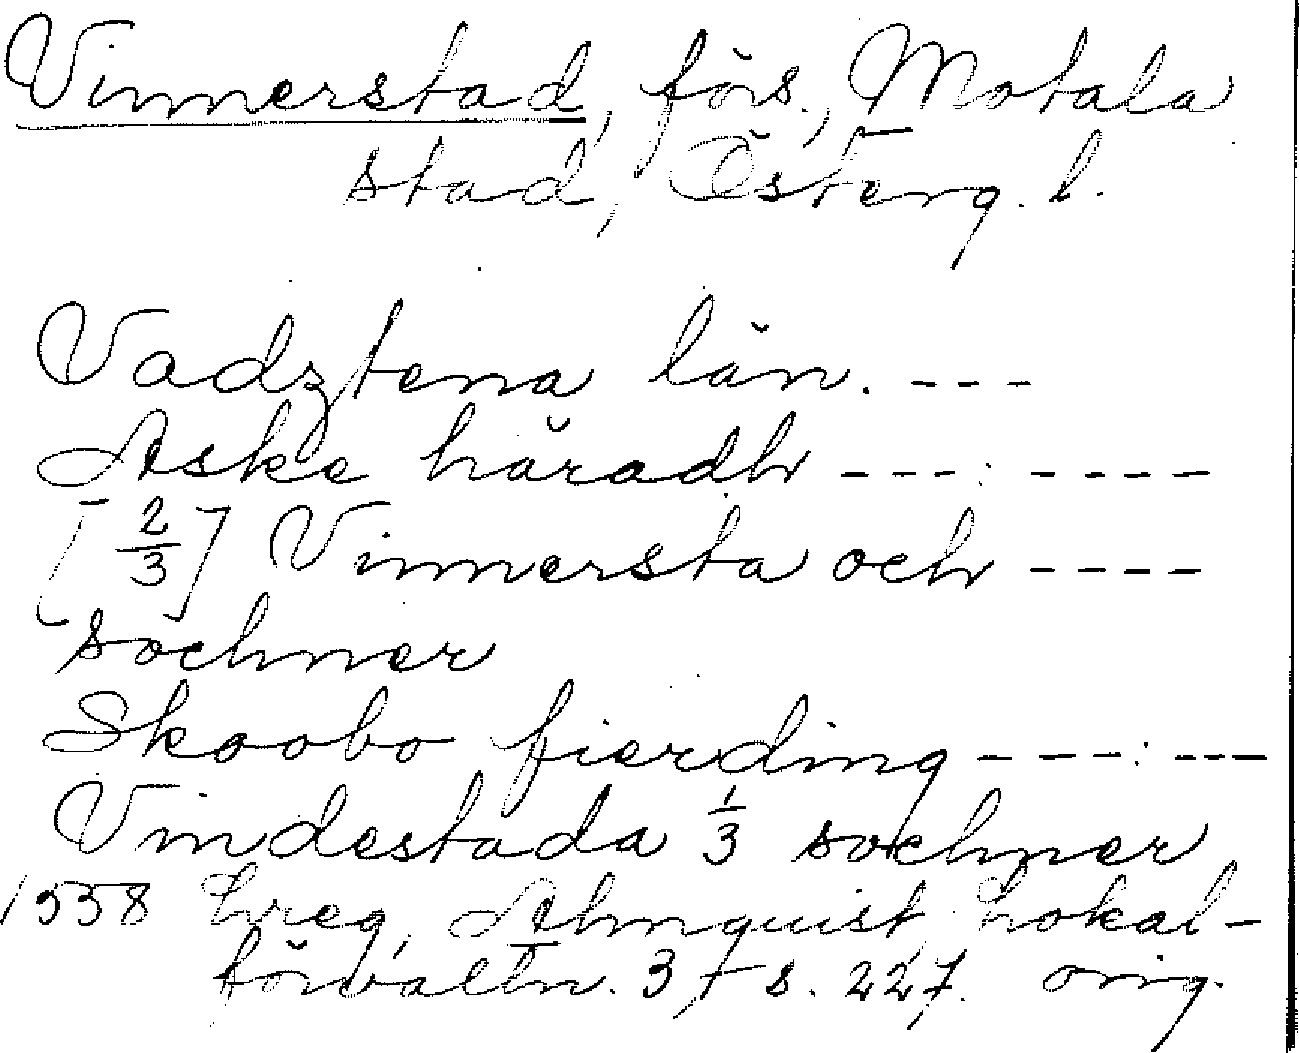 Vinnerstad, förs., Motala
stad, Österg. l.
Vadztena län. ---
Aske häradh ---:----
[2/3] Vinnersta och ----
sochner
Skoobo fierding ---:---
Vindestada 1/3 sochner
1558 Lreg, Almquist, Lokal-
förvaltn. 3, s. 227. orig.